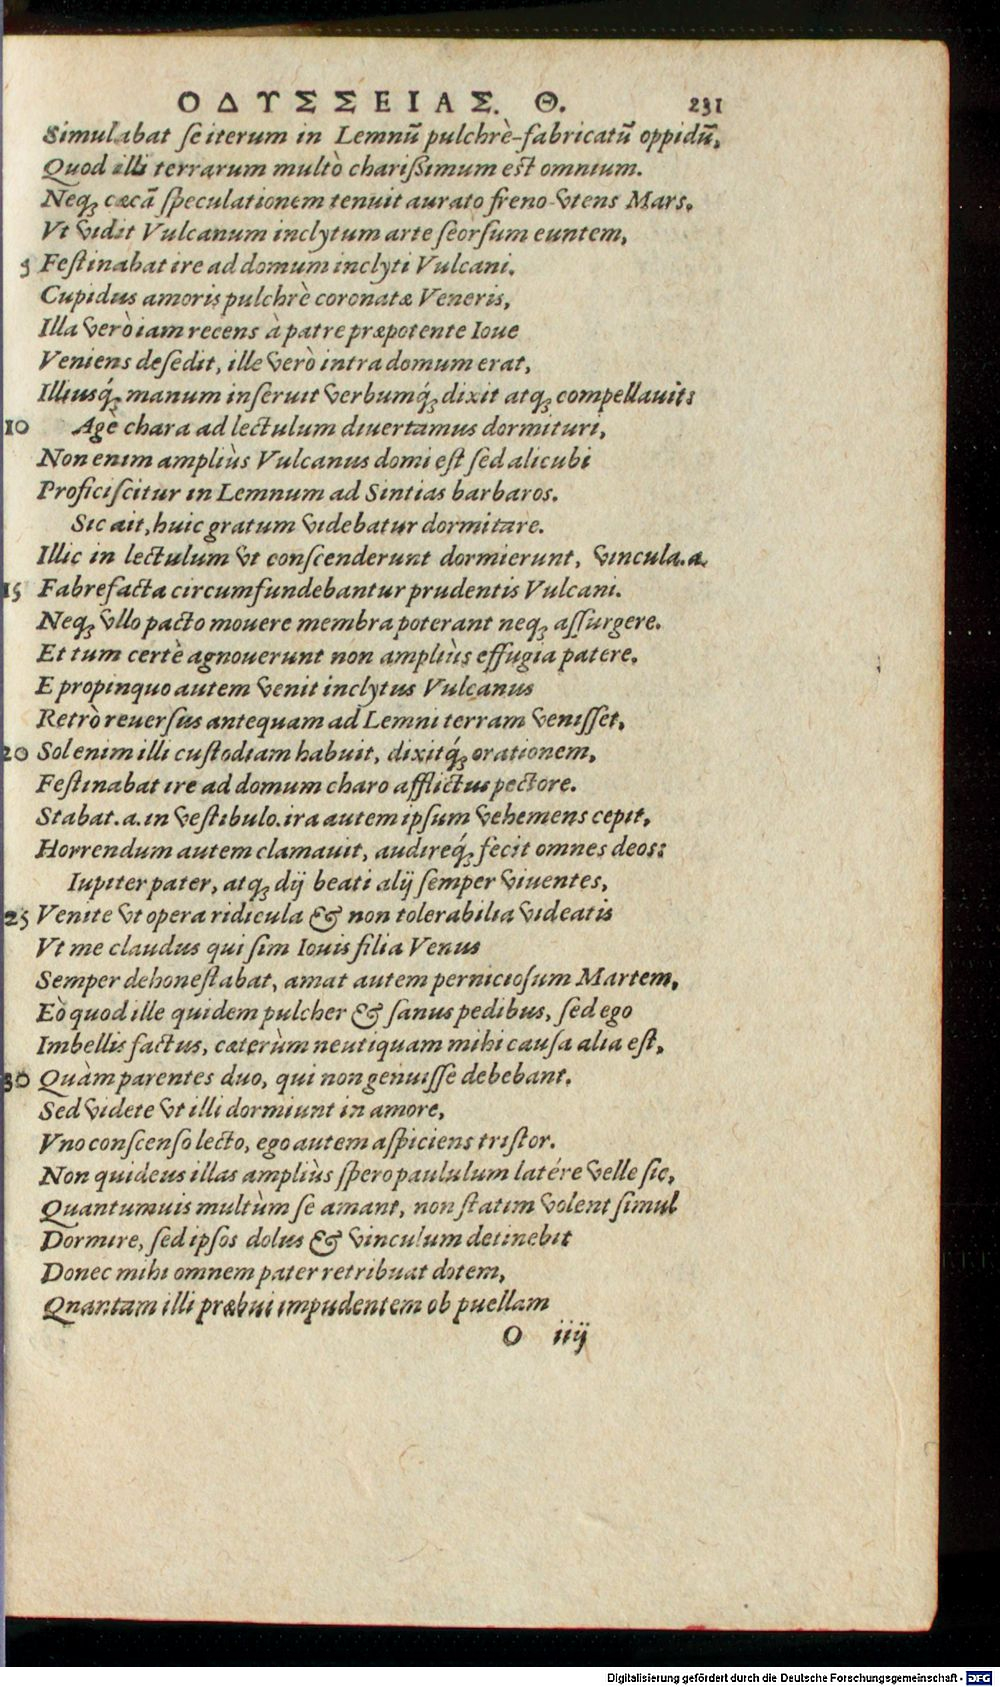 ΟΔΥΣΣΕΙΑΣ. Θ. 231
Simulabat se iterum in Lemnū pulchrè-fabricatū oppidū,
Quod illi terrarum multò charißimum est omnium.
Neq; cæcā speculationem tenuit aurato freno vtens Mars.
Vt vidit Vulcanum inclytum arte seorsum euntem,
5 Festinabat ire ad domum inclyti Vulcani.
Cupidus amoris pulchrè coronatæ Veneris,
Illa verò iam recens à patre præpotente Ioue
Veniens desedit, ille verò intra domum erat,
Illiusq́; manum inseruit verbumq́; dixit atq; compellauit:
10 Agè chara ad lectulum diuertamus dormituri,
Non enim ampliùs Vulcanus domi est sed alicubi
Proficiscitur in Lemnum ad Sintias barbaros.
Sic ait, huic gratum videbatur dormitare.
Illic in lectulum vt conscenderunt dormierunt, vincula.a.
15 Fabrefacta circumfundebantur prudentis Vulcani.
Neq; vllo pacto mouere membra poterant neq; assurgere.
Et tum certè agnouerunt non ampliùs effugia patere.
E propinquo autem venit inclytus Vulcanus
Retrò reuersus antequam ad Lemni terram venisset,
20 Sol enim illi custodiam habuit, dixitq́; orationem,
Festinabat ire ad domum charo afflictus pectore.
Stabat.a.in vestibulo.ira autem ipsum vehemens cepit,
Horrendum autem clamauit, audireq́; fecit omnes deos:
Iupiter pater, atq; dij beati alij semper viuentes,
25 Venite vt opera ridicula & non tolerabilia videatis
Vt me claudus qui sim Iouis filia Venus
Semper dehonestabat, amat autem perniciosum Martem,
Eò quod ille quidem pulcher & sanus pedibus, sed ego
Imbellis factus, cæterùm neutiquam mihi causa alia est,
30 Quàm parentes duo, qui non genuisse debebant.
Sed videte vt illi dormiunt in amore,
Vno conscenso lecto, ego autem aspiciens tristor.
Non quideus illas ampliùs spero paululum latére velle sic,
Quantumuis multùm se amant, non statim volent simul
Dormire, sed ipsos dolus & vinculum detinebit
Donec mihi omnem pater retribuat dotem,
Qnantam illi præbui impudentem ob puellam
O iiij
Digitalisierung gefördert durch die Deutsche Forschungsgemeinschaft - DFG